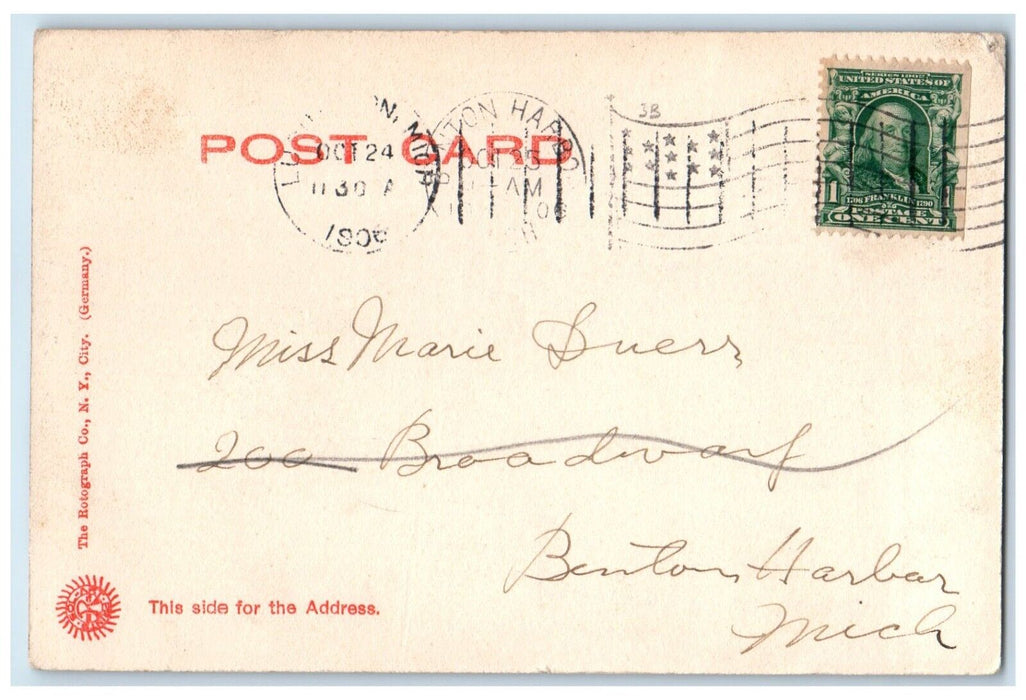 SERIES 1902
UNITED STATES OF
AMERICA
1 1
1706 FRANKLIN 1790
POSTAGE
ONE CENT
3B
POST CARD
OCT 24
1130 A
1906
TON HARBO
AM
Miss Marie Duerr
200 Broadway
Benton Harbor
Mich
The Rotograph Co., N. Y., City. (Germany.)
This side for the Address.